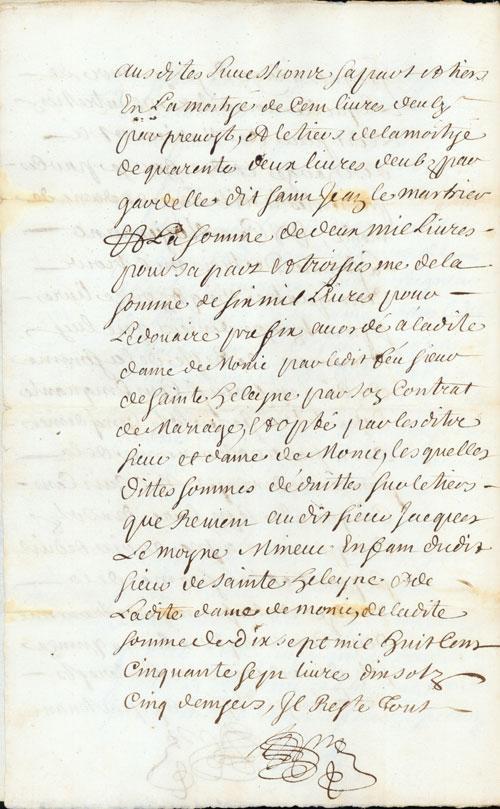 ausdites successions sa part et tiers
En La moitye de Cent livres deub
par prevost, et le tiers de la moitye
de quarente deux livres deubz par
gardelle dit saint Jean le martrier
La somme de deux mil Livres -
pour sa part et troisiesme de la
somme de six mil Livres pour
Le douaire prefix accordé a ladite
dame de Monic par ledit feu sieur
de Sainte Heleyne par son Contrat
de Mariage, et opté par lesditz
sieur et dame de Monic, lesquelles
dittes sommes déduittes sur le tiers -
que Revient audit sieur Jacques
Le moyne Mineur Enfant dudit
sieur de Sainte Heleyne & de
Ladite dame de monic, de ladite
somme de dix sept mil huit Cent
Cinquante sept livres dix solz
Cinq deniers, Il Reste Tout -